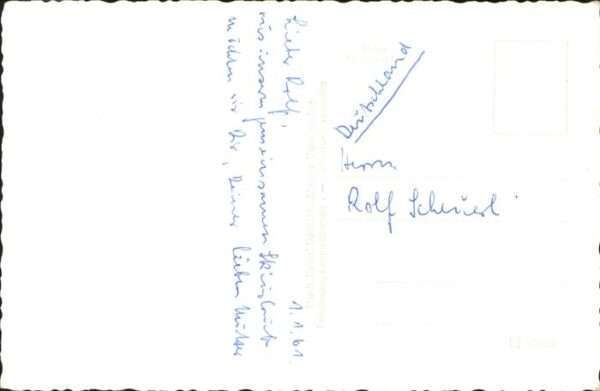 1.1.61.
Lieber Rolf,
aus unserm gemeinsamen Skiurlaub
möchten wir Dir, Deiner lieben Mutter
Deutschland
Herrn
Rolf